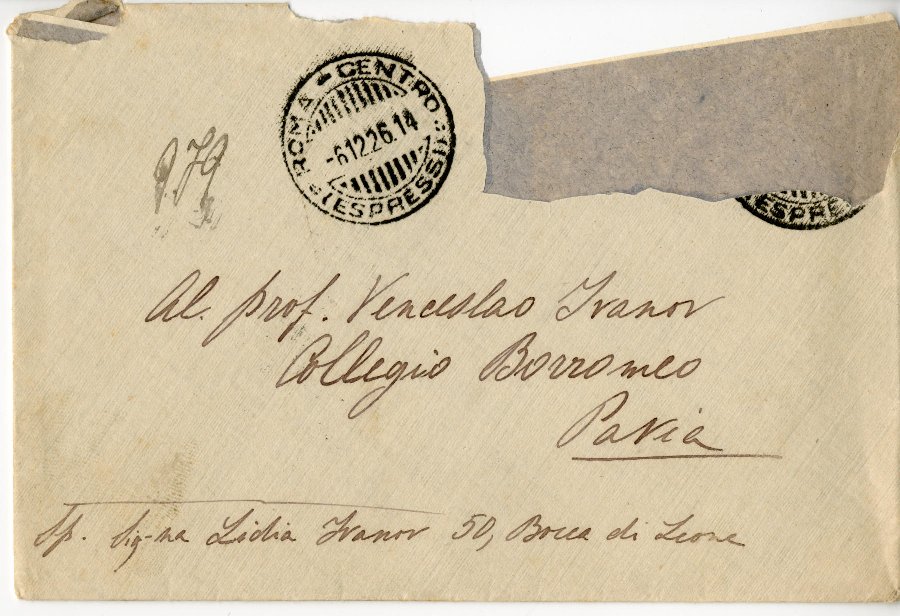 ROMA CENTRO
-6 12 26.14
(ESPRESSI)
(ESPRE
Al. prof. Venceslao Ivanov
Collegio Borromeo
Pavia
Sp. Sig-na Lidia Ivanov 50, Bocca di Leone